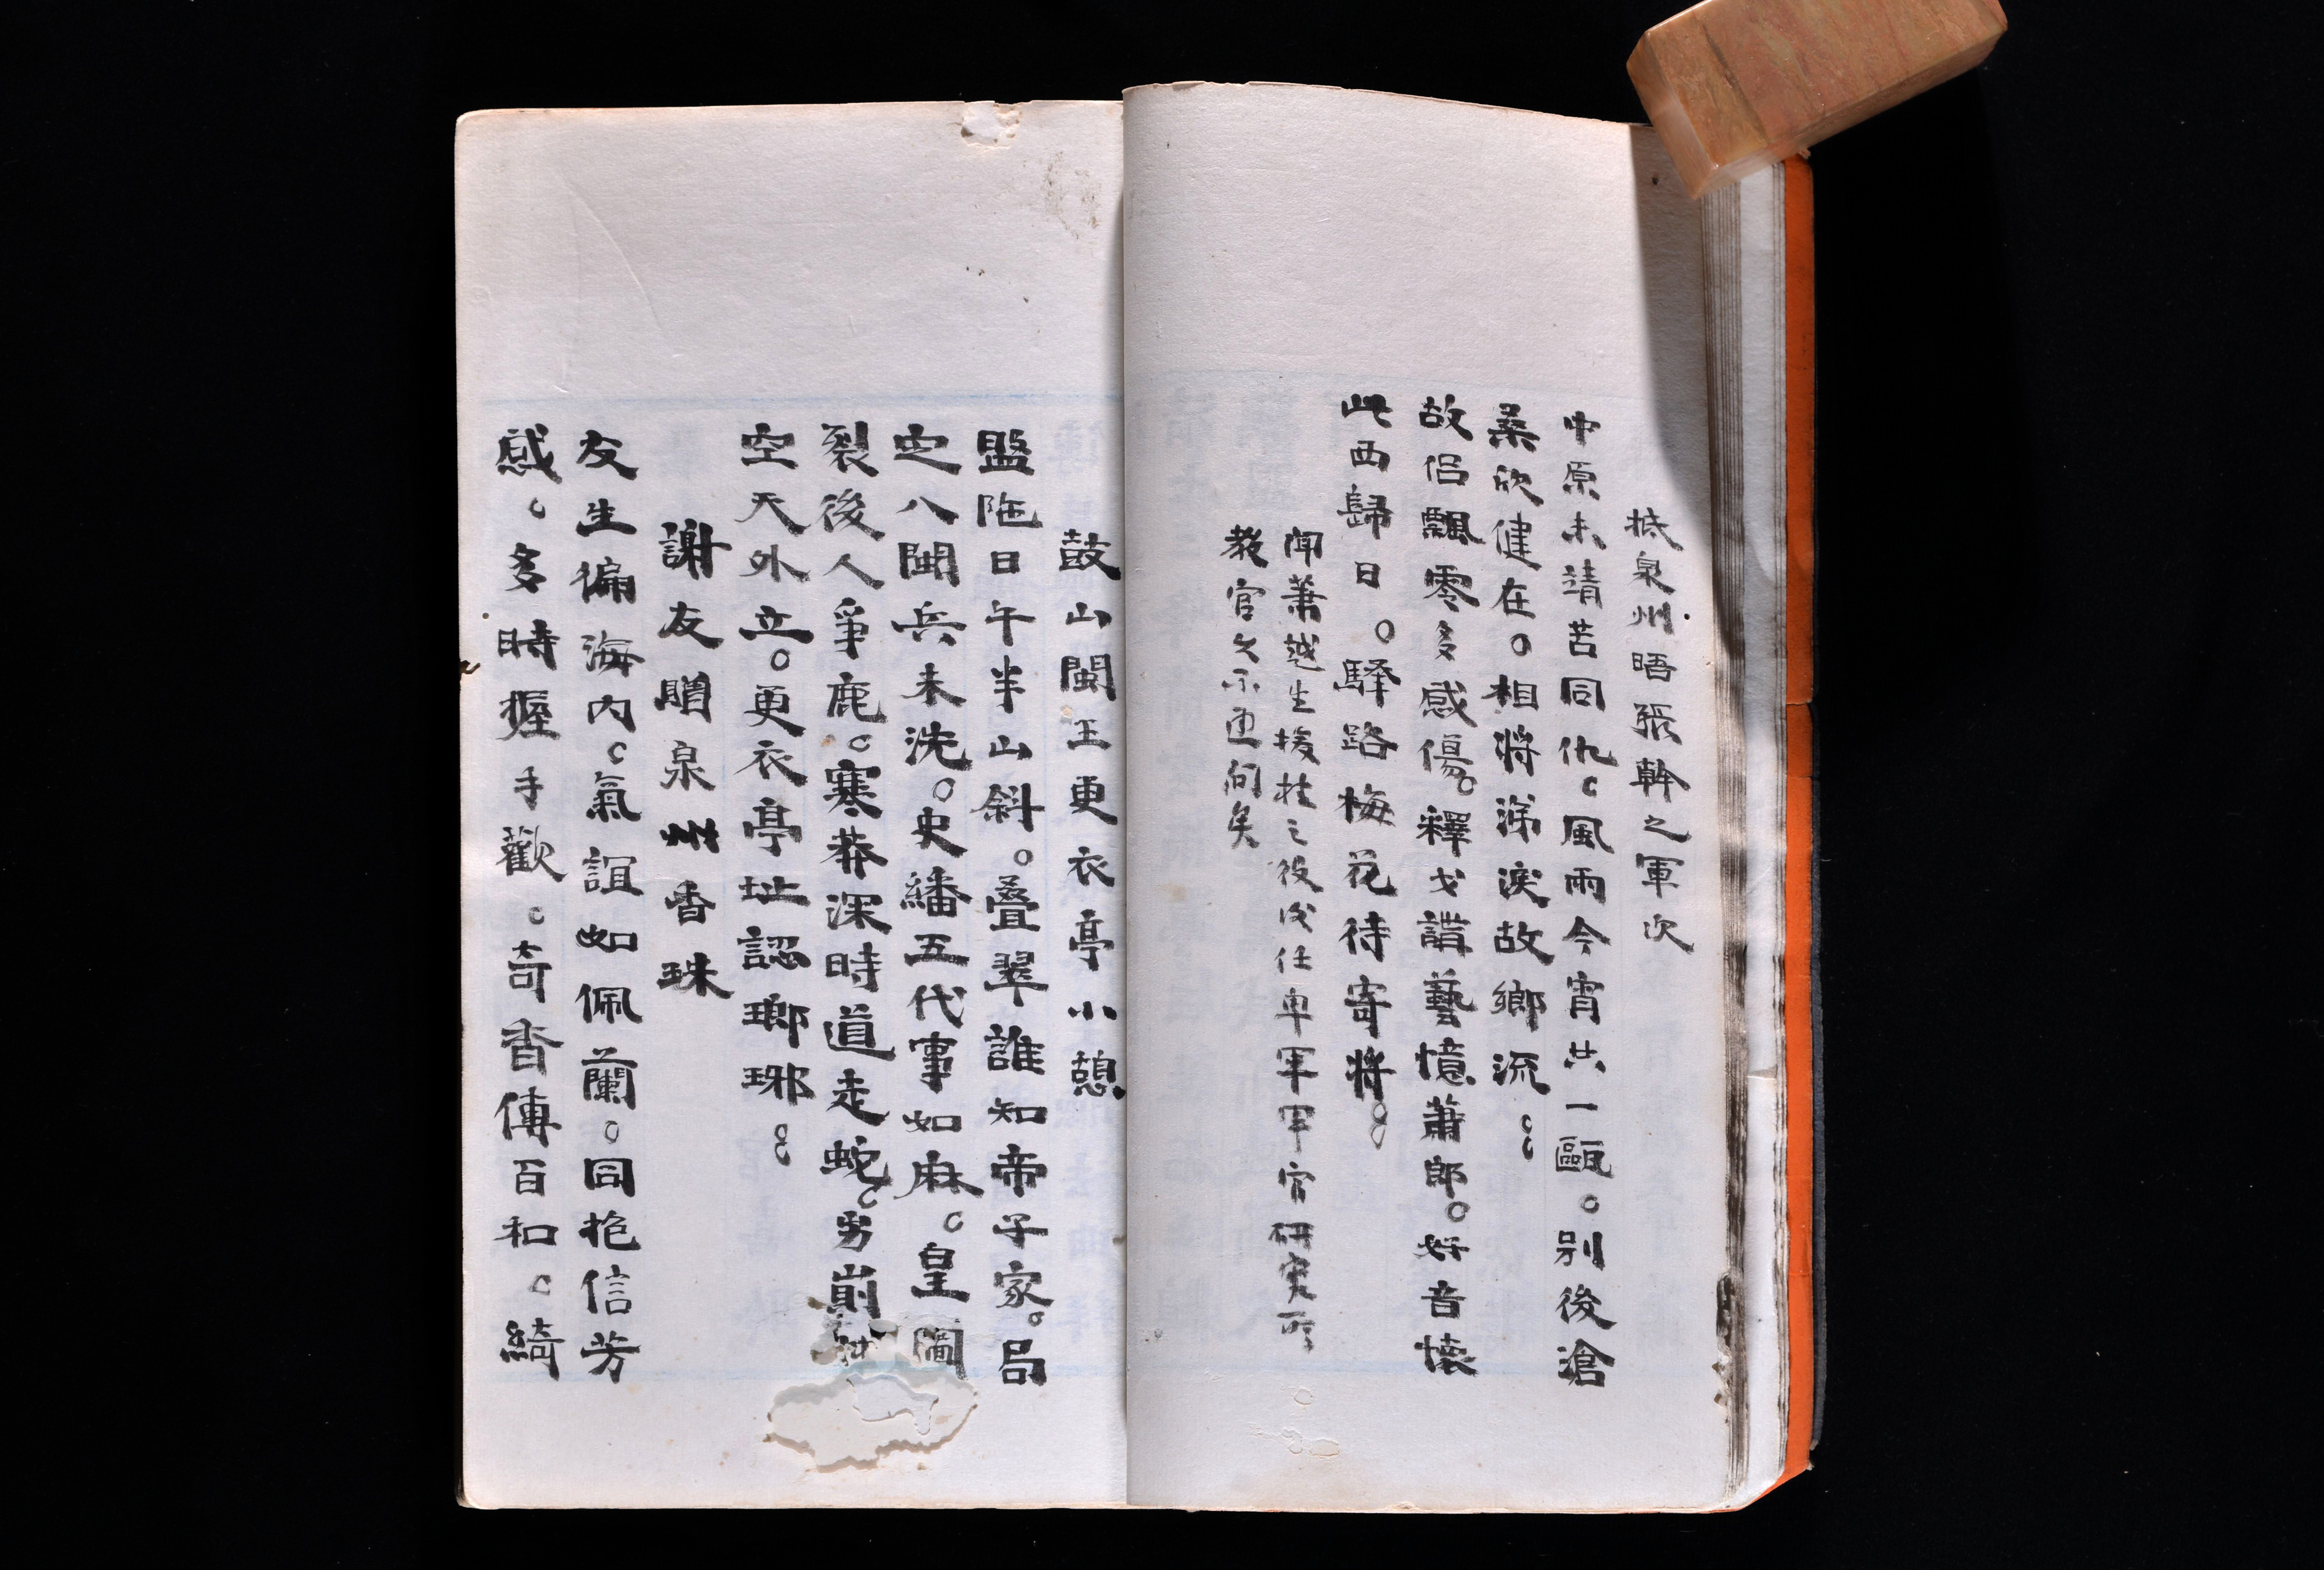 抵泉州晤張幹之軍次
中原未靖苦同仇。風雨今宵共一甌。別後滄
桑欣健在。相將涕淚故鄉流。。
故侶飄零多感傷。釋戈講藝憶蕭郎。好音懷
此西歸日。驛路梅花待寄將。。
聞蕭越生援桂之役後任車軍軍官研究所
教官久不通問矣
鼓山閩王更衣亭小憩
盤陁日午半山斜。疊翠誰知帝子家。局
定八閩兵未洗。史繙五代事如麻。皇圖
裂後人爭鹿。寒莽深時道走蛇。另崩
空天外立。更衣亭址認瑯琊。。
謝友贈泉州香珠
友生徧海內。氣誼如佩蘭。同抱信芳
感。多時握手歡。奇香傳百和。綺